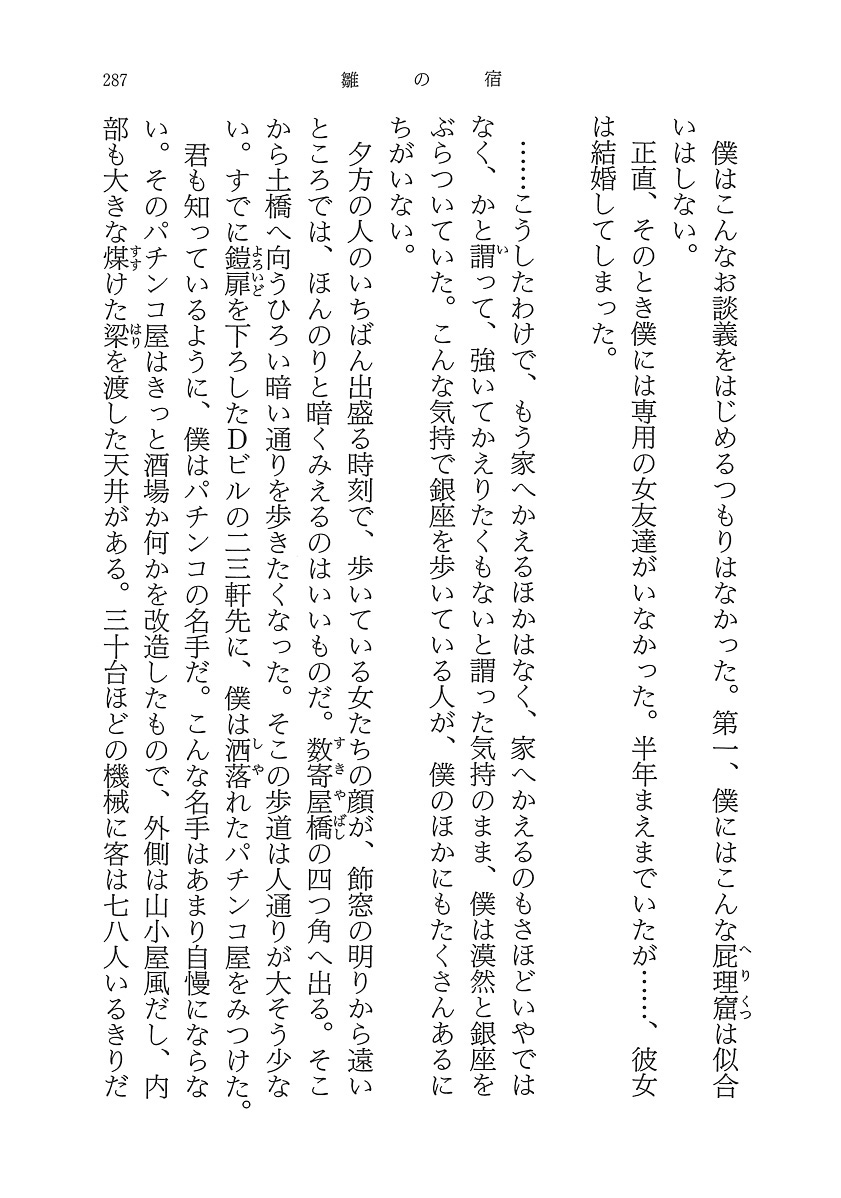 287
雛の宿
僕はこんなお談義をはじめるつもりはなかった。第一、僕にはこんな屁理窟は似合
いはしない。
正直、そのとき僕には専用の女友達がいなかった。半年まえまでいたが……、彼女
は結婚してしまった。
……こうしたわけで、もう家へかえるほかはなく、家へかえるのもさほどいやでは
なく、かと謂って、強いてかえりたくもないと謂った気持のまま、僕は漠然と銀座を
ぶらついていた。こんな気持で銀座を歩いている人が、僕のほかにもたくさんあるに
ちがいない。
夕方の人のいちばん出盛る時刻で、歩いている女たちの顔が、飾窓の明りから遠い
ところでは、ほんのりと暗くみえるのはいいものだ。数寄屋橋の四つ角へ出る。そこ
から土橋へ向うひろい暗い通りを歩きたくなった。そこの歩道は人通りが大そう少な
い。すでに鎧扉を下ろしたDビルの二三軒先に、僕は洒落れたパチンコ屋をみつけた。
君も知っているように、僕はパチンコの名手だ。こんな名手はあまり自慢にならな
い。そのパチンコ屋はきっと酒場か何かを改造したもので、外側は山小屋風だし、内
部も大きな煤けた梁を渡した天井がある。三十台ほどの機械に客は七八人いるきりだ